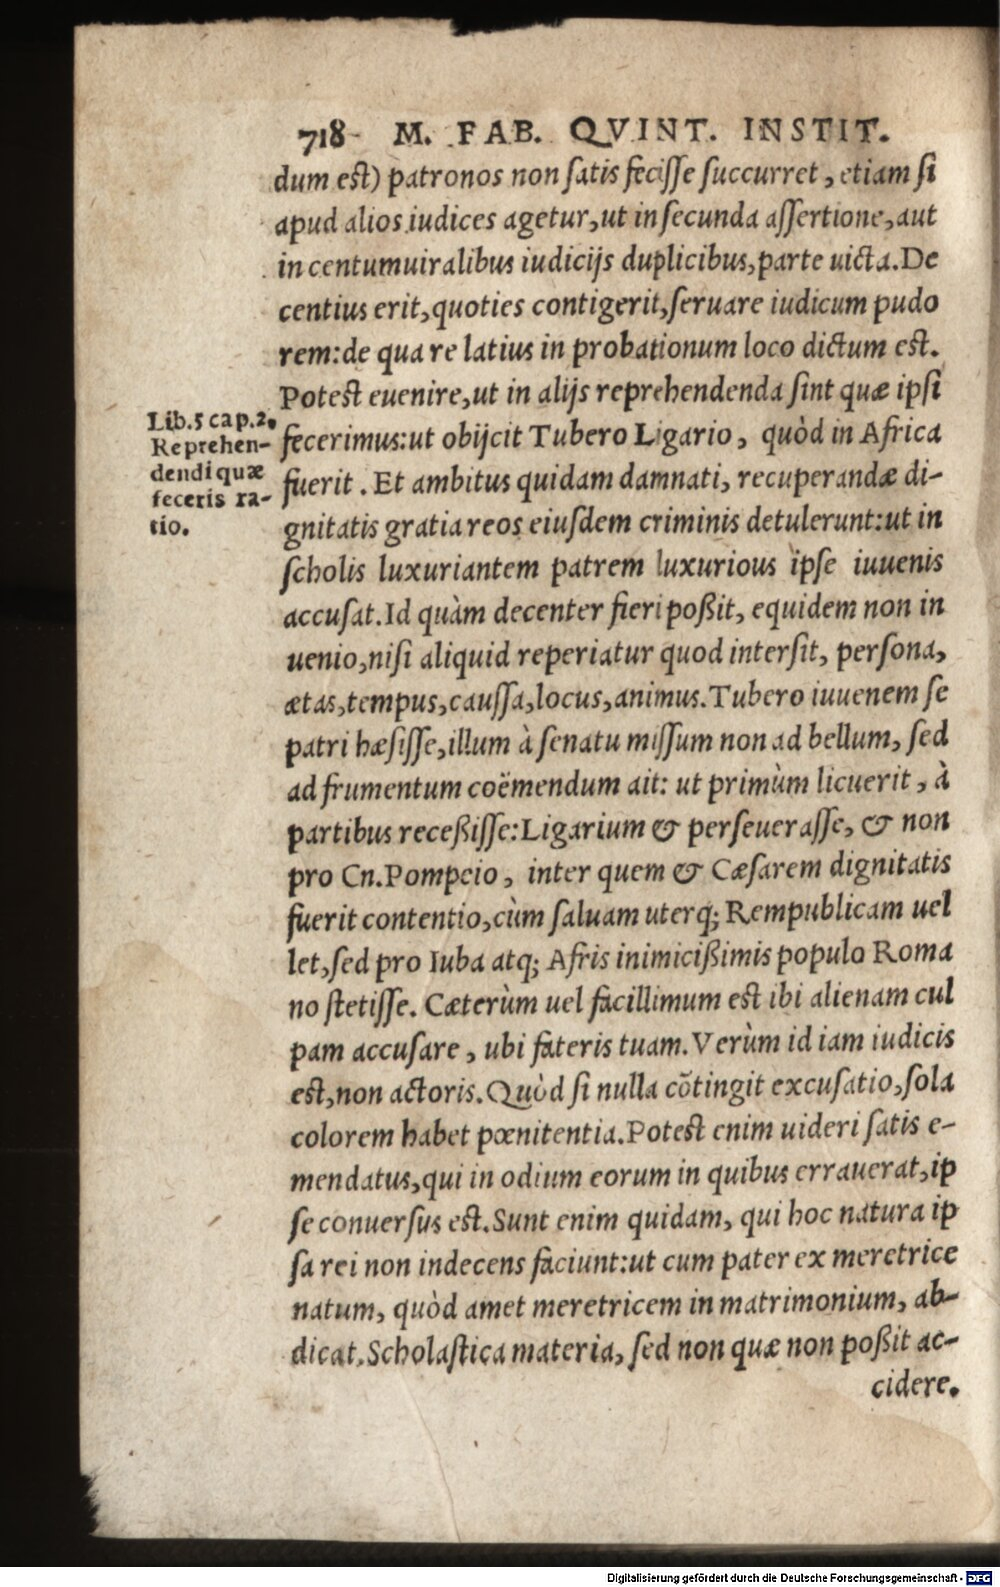 718 M. FAB. QVINT. INSTIT.
dum est) patronos non satis fecisse succurret, etiam si
apud alios iudices agetur, ut in secunda assertione, aut
in centumuiralibus iudicijs duplicibus, parte uicta. De
centius erit, quoties contigerit, seruare iudicum pudo
rem: de qua re latius in probationum loco dictum est.
Potest euenire, ut in alijs reprehendenda sint quæ ipsi
Lib. 5 cap. 2.
Reprehen-
dendi quæ
feceris ra-
tio.
fecerimus: ut obijcit Tubero Ligario, quòd in Africa
fuerit. Et ambitus quidam damnati, recuperandæ di-
gnitatis gratia reos eiusdem criminis detulerunt: ut in
scholis luxuriantem patrem luxurious ipse iuuenis
accusat. Id quàm decenter fieri poßit, equidem non in
uenio, nisi aliquid reperiatur quod intersit, persona,
ætas, tempus, caussa, locus, animus. Tubero iuuenem se
patri hæsisse, illum à senatu missum non ad bellum, sed
ad frumentum coëmendum ait: ut primùm licuerit, à
partibus receßisse: Ligarium & perseuerasse, & non
pro Cn. Pompeio, inter quem & Cæsarem dignitatis
fuerit contentio, cùm saluam uterq; Rempublicam uel
let, sed pro Iuba atq; Afris inimicißimis populo Roma
no stetisse. Cæterùm uel facillimum est ibi alienam cul
pam accusare, ubi fateris tuam. Verùm id iam iudicis
est, non actoris. Quòd si nulla cõtingit excusatio, sola
colorem habet pœnitentia. Potest enim uideri satis e-
mendatus, qui in odium eorum in quibus errauerat, ip
se conuersus est. Sunt enim quidam, qui hoc natura ip
sa rei non indecens faciunt: ut cum pater ex meretrice
natum, quòd amet meretricem in matrimonium, ab-
dicat. Scholastica materia, sed non quæ non poßit ac-
cidere.
Digitalisierung gefördert durch die Deutsche Forschungsgemeinschaft - DFG